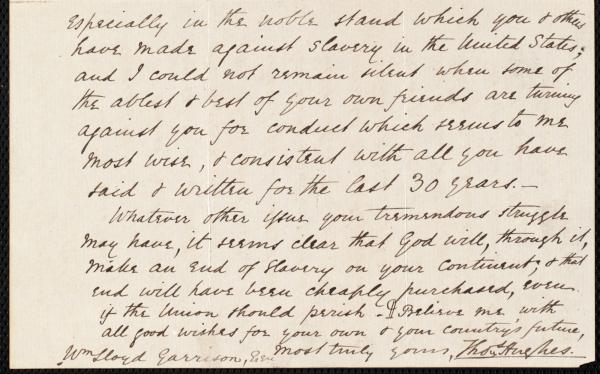 especially in the noble stand which you & others
have made against slavery in the United States;
and I could not remain silent when some of
the ablest & best of your own friends are turning
against you for conduct which seems to me
most wise, & consistent with all you have
said & written for the last 30 years.—
Whatever other issue your tremendous struggle
may have, it seems clear that God will, through it,
make an end of slavery on your continent; & that
end will have been cheaply purchased, even
if the Union should perish - ¶ Believe me, with
all good wishes for your own & your country's future,
Wm Lloyd Garrison, Esq. most truly yours, Thos Hughes.